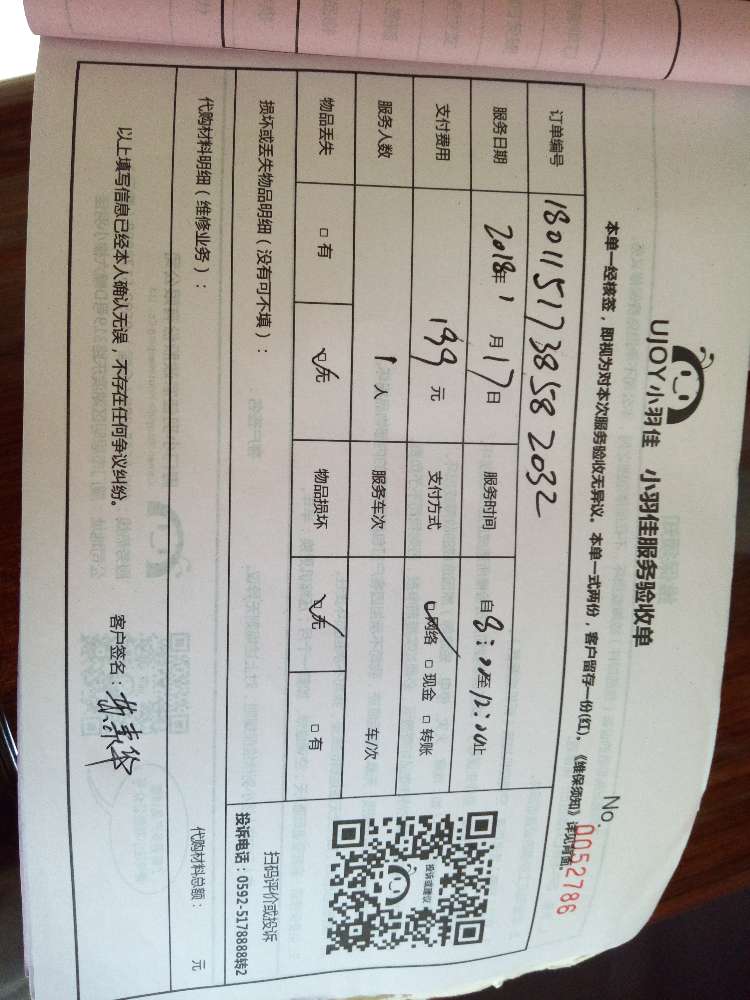 UJOY小羽佳 小羽佳服务验收单
No. 0052786
本单一经核签，即视为对本次服务验收无异议。本单一式两份，客户留存一份(红)。《维保须知》详见背面。
订单编号 180115173858 2032
服务日期 2018年 1 月 17日 服务时间 自 8:00至12:00止
支付费用 199 元 支付方式 ☑网络 □现金 □转账
服务人数 1 人 服务车次 车/次
物品丢失 □有 ☑无 物品损坏 ☑无 □有
投诉或建议
扫码评价或投诉
投诉电话：0592-5178888转2
损坏或丢失物品明细（没有可不填）：
代购材料明细（维修业务）： 代购材料总额： 元
以上填写信息已经本人确认无误，不存在任何争议纠纷。 客户签名：